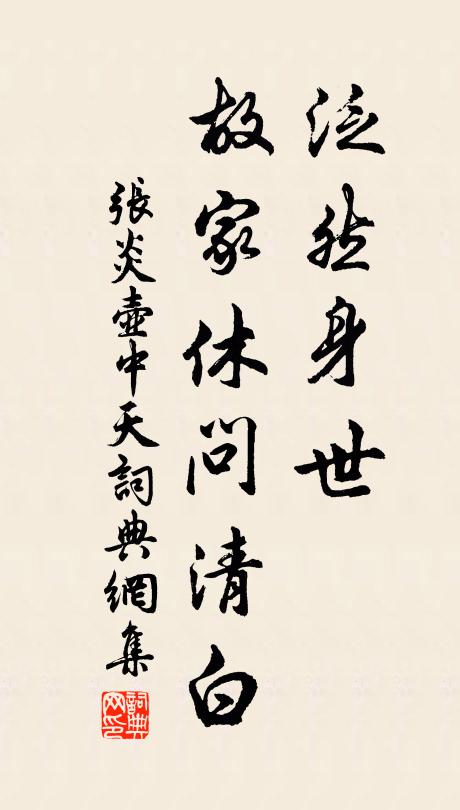 泛然身世
故家休問清白
張炎壺中天詞典網集
詞典网印